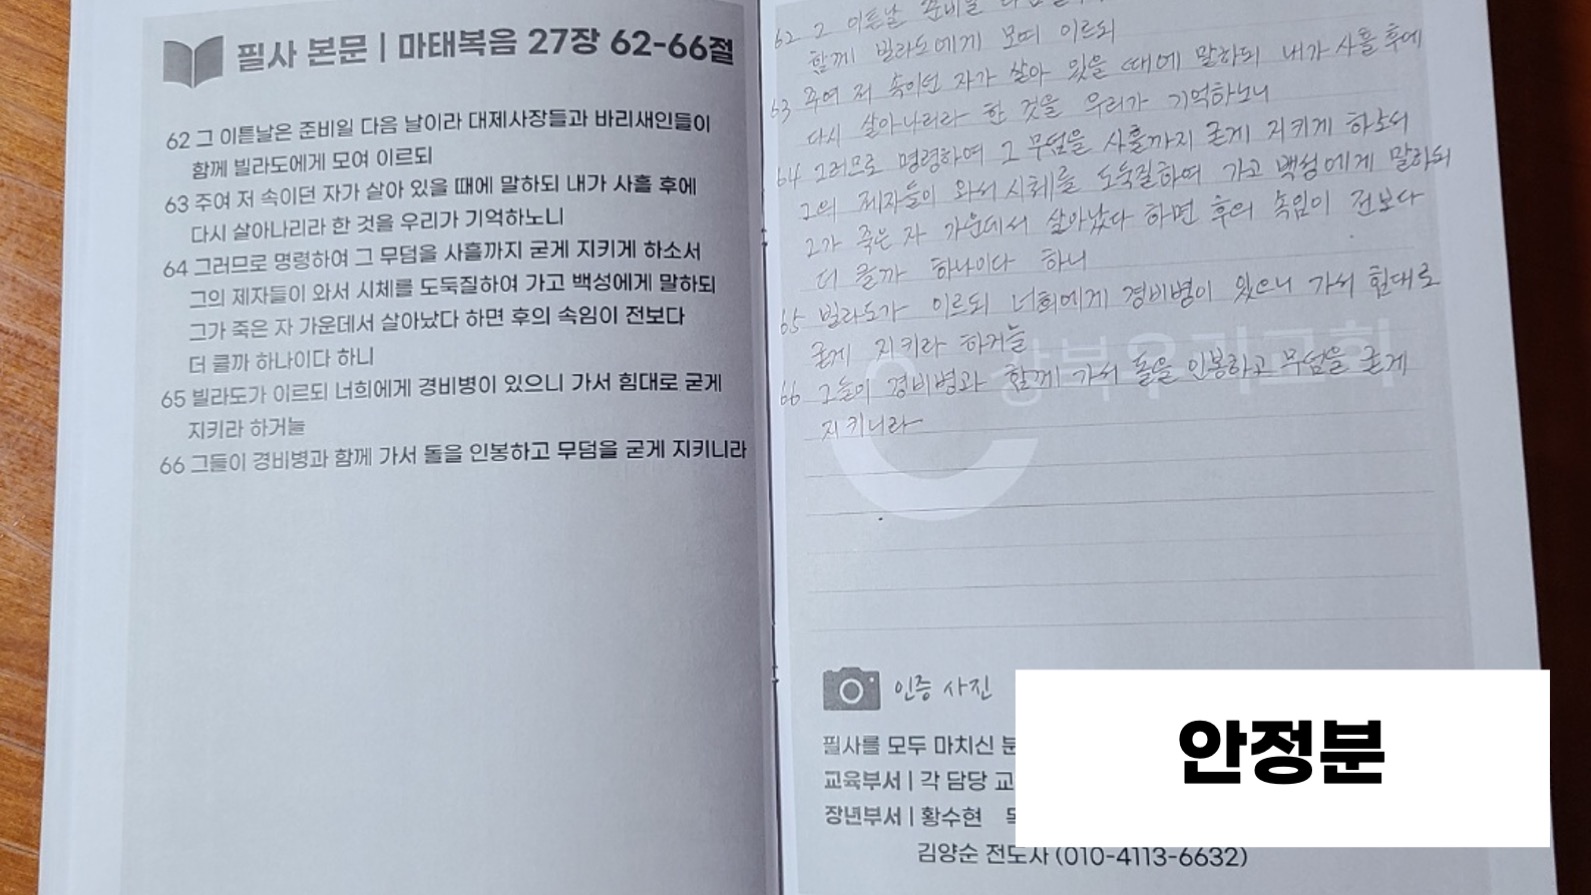 필사 본문 | 마태복음 27장 62-66절
62 그 이튿날은 준비일 다음 날이라 대제사장들과 바리새인들이
함께 빌라도에게 모여 이르되
63 주여 저 속이던 자가 살아 있을 때에 말하되 내가 사흘 후에
다시 살아나리라 한 것을 우리가 기억하노니
64 그러므로 명령하여 그 무덤을 사흘까지 굳게 지키게 하소서
그의 제자들이 와서 시체를 도둑질하여 가고 백성에게 말하되
그가 죽은 자 가운데서 살아났다 하면 후의 속임이 전보다
더 클까 하나이다 하니
65 빌라도가 이르되 너희에게 경비병이 있으니 가서 힘대로 굳게
지키라 하거늘
66 그들이 경비병과 함께 가서 돌을 인봉하고 무덤을 굳게 지키니라
62 그 이튿날 준비일
함께 빌라도에게 모여 이르되
63 주여 저 속이던 자가 살아 있을 때에 말하되 내가 사흘 후에
다시 살아나리라 한 것을 우리가 기억하노니
64 그러므로 명령하여 그 무덤을 사흘까지 굳게 지키게 하소서
그의 제자들이 와서 시체를 도둑질하여 가고 백성에게 말하되
그가 죽은 자 가운데서 살아났다 하면 후의 속임이 전보다
더 클까 하나이다 하니
65 빌라도가 이르되 너희에게 경비병이 있으니 가서 힘대로
굳게 지키라 하거늘
66 그들이 경비병과 함께 가서 돌을 인봉하고 무덤을 굳게
지키니라
인증 사진
필사를 모두 마치신
교육부서 | 각 담당
장년부서 | 황수현
김양순 전도사 (010-4113-6632)
안정분